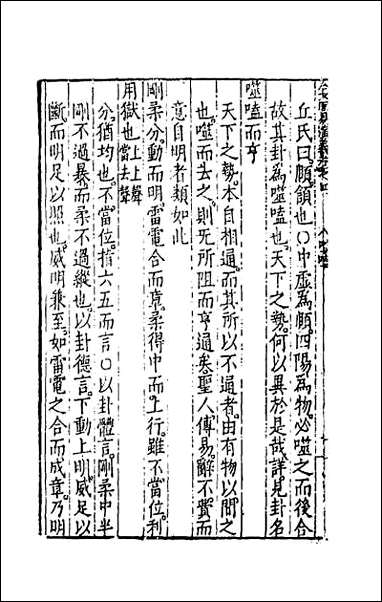 丘氏曰頤頷也〇中虛為頤四陽為物必噬之而後合
故其卦為噬嗑也天下之勢何以異於是哉詳見卦名
噬嗑而亨
天下之勢本自相通而其所以不通者由有物以間之
也噬而去之則旡所阻而亨通矣聖人傳易辭不費而
意自明者類如此
剛柔分動而明雷電合而章柔得中而上行雖不當位利
用獄也 上上聲當去聲
分猶均也不當位指六五而言〇以卦體言剛柔中半
剛不過暴而柔不過縱也以卦德言下動上明威足以
斷而明足以照也威明兼至如雷電之合而成章乃明